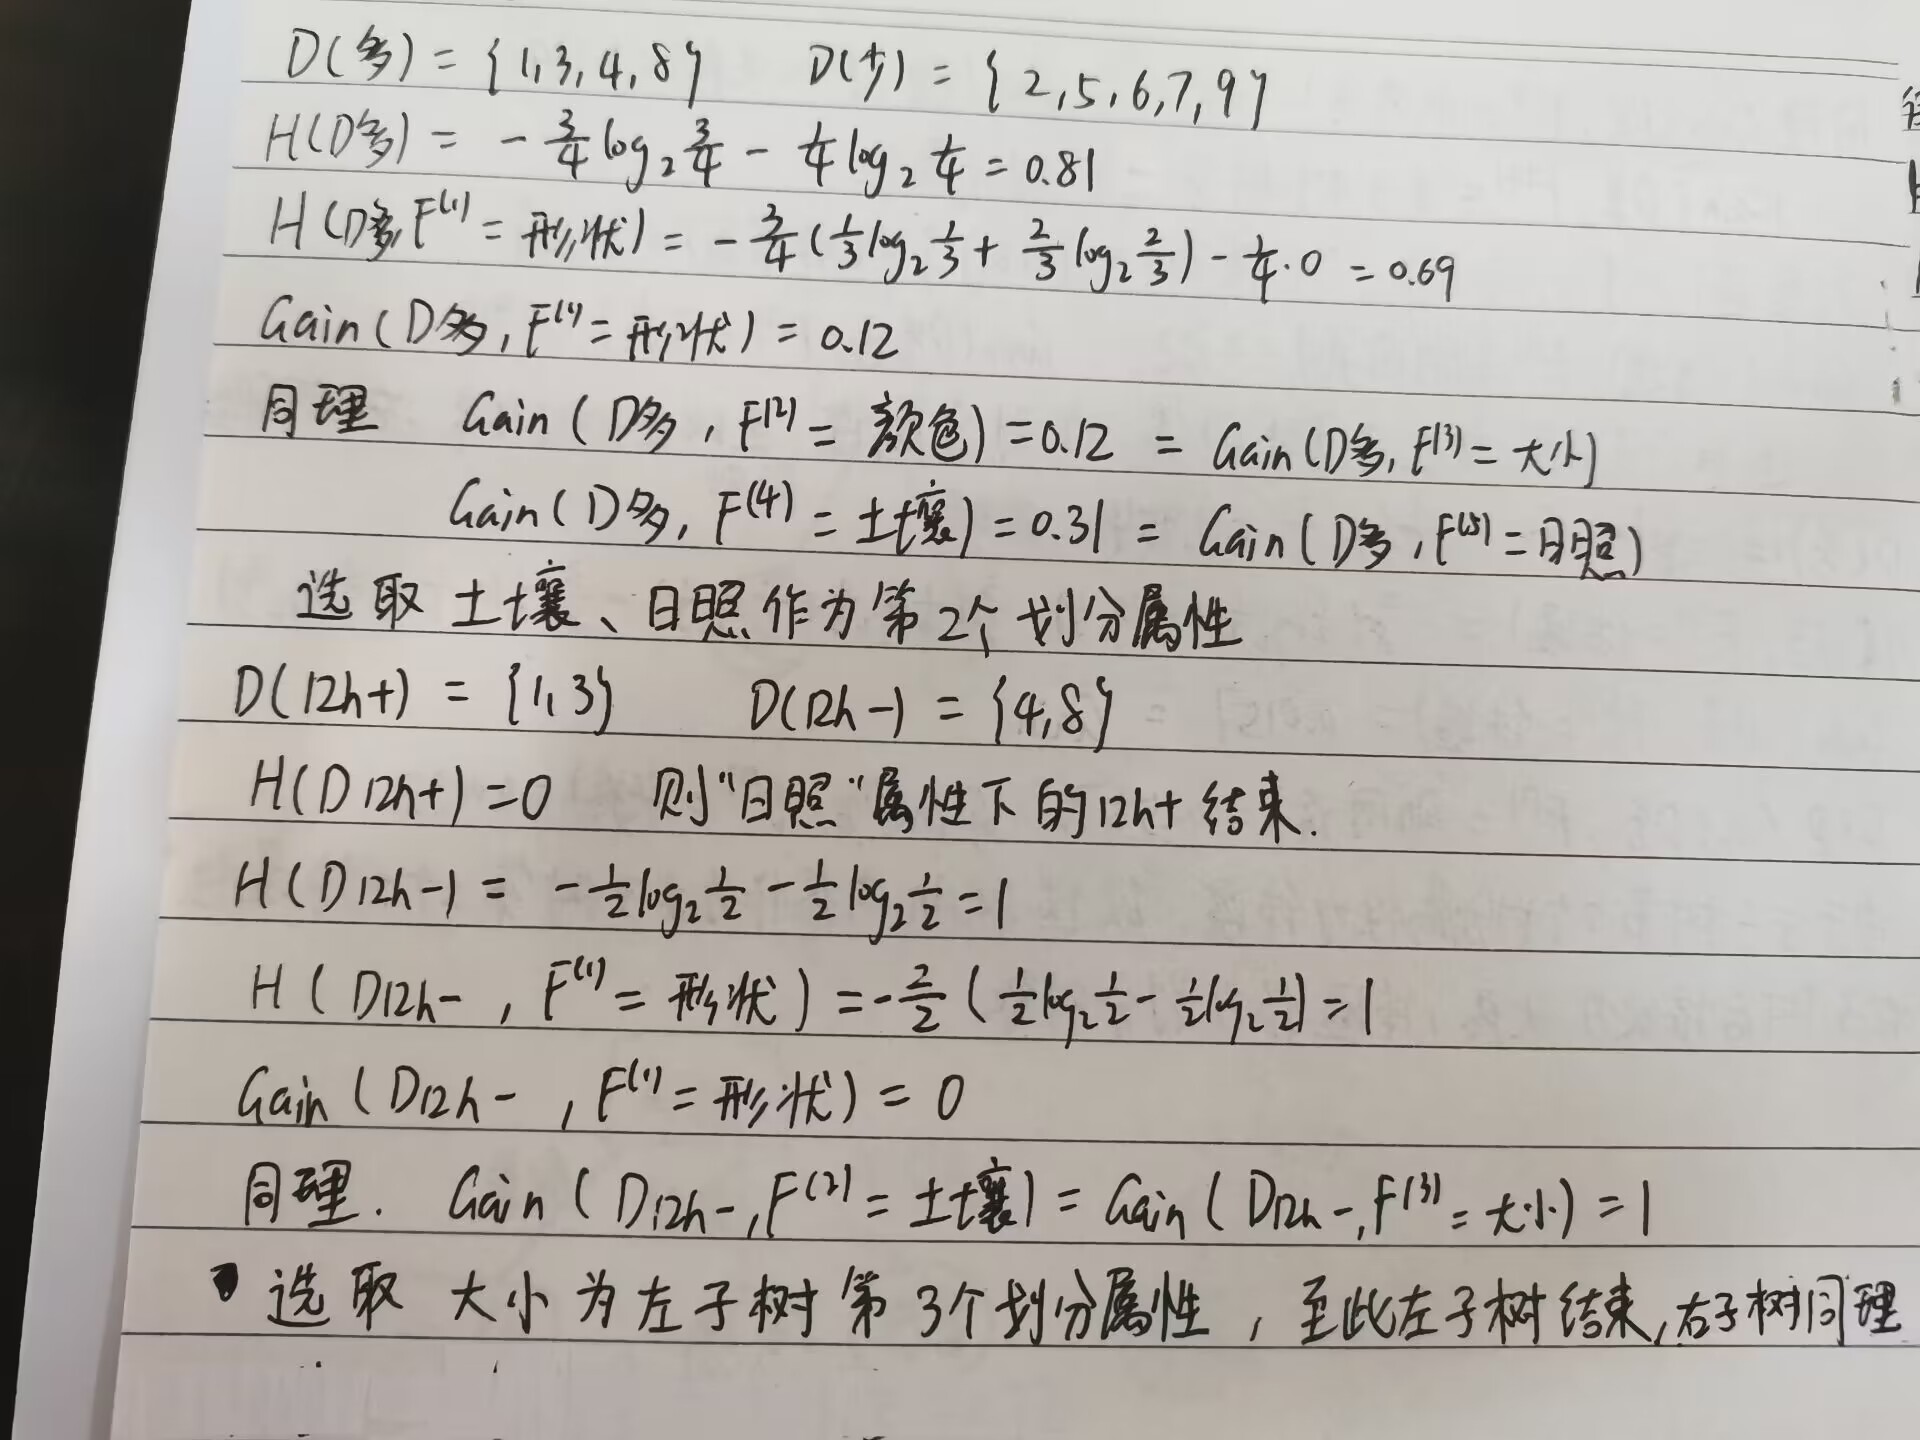 D(多) = {1,3,4,8} D(少) = {2,5,6,7,9}
H(D多) = - 3/4 log₂ 3/4 - 1/4 log₂ 1/4 = 0.81
H(D多,F⁽¹⁾ = 形状) = - 3/4 (1/3 log₂ 1/3 + 2/3 log₂ 2/3) - 1/4 · 0 = 0.69
Gain(D多, F⁽¹⁾ = 形状) = 0.12
同理 Gain(D多, F⁽²⁾ = 颜色) = 0.12 = Gain(D多, F⁽³⁾ = 大小)
Gain(D多, F⁽⁴⁾ = 土壤) = 0.31 = Gain(D多, F⁽⁵⁾ = 日照)
选取 土壤、日照作为第2个划分属性
D(12h+) = {1,3} D(12h-) = {4,8}
H(D12h+) = 0 则"日照"属性下的12h+结束.
H(D12h-) = - 1/2 log₂ 1/2 - 1/2 log₂ 1/2 = 1
H(D12h-, F⁽¹⁾ = 形状) = - 2/2 (1/2 log₂ 1/2 - 1/2 log₂ 1/2) = 1
Gain(D12h-, F⁽¹⁾ = 形状) = 0
同理. Gain(D12h-, F⁽²⁾ = 土壤) = Gain(D12h-, F⁽³⁾ = 大小) = 1
选取 大小为左子树第3个划分属性,至此左子树结束,右子树同理